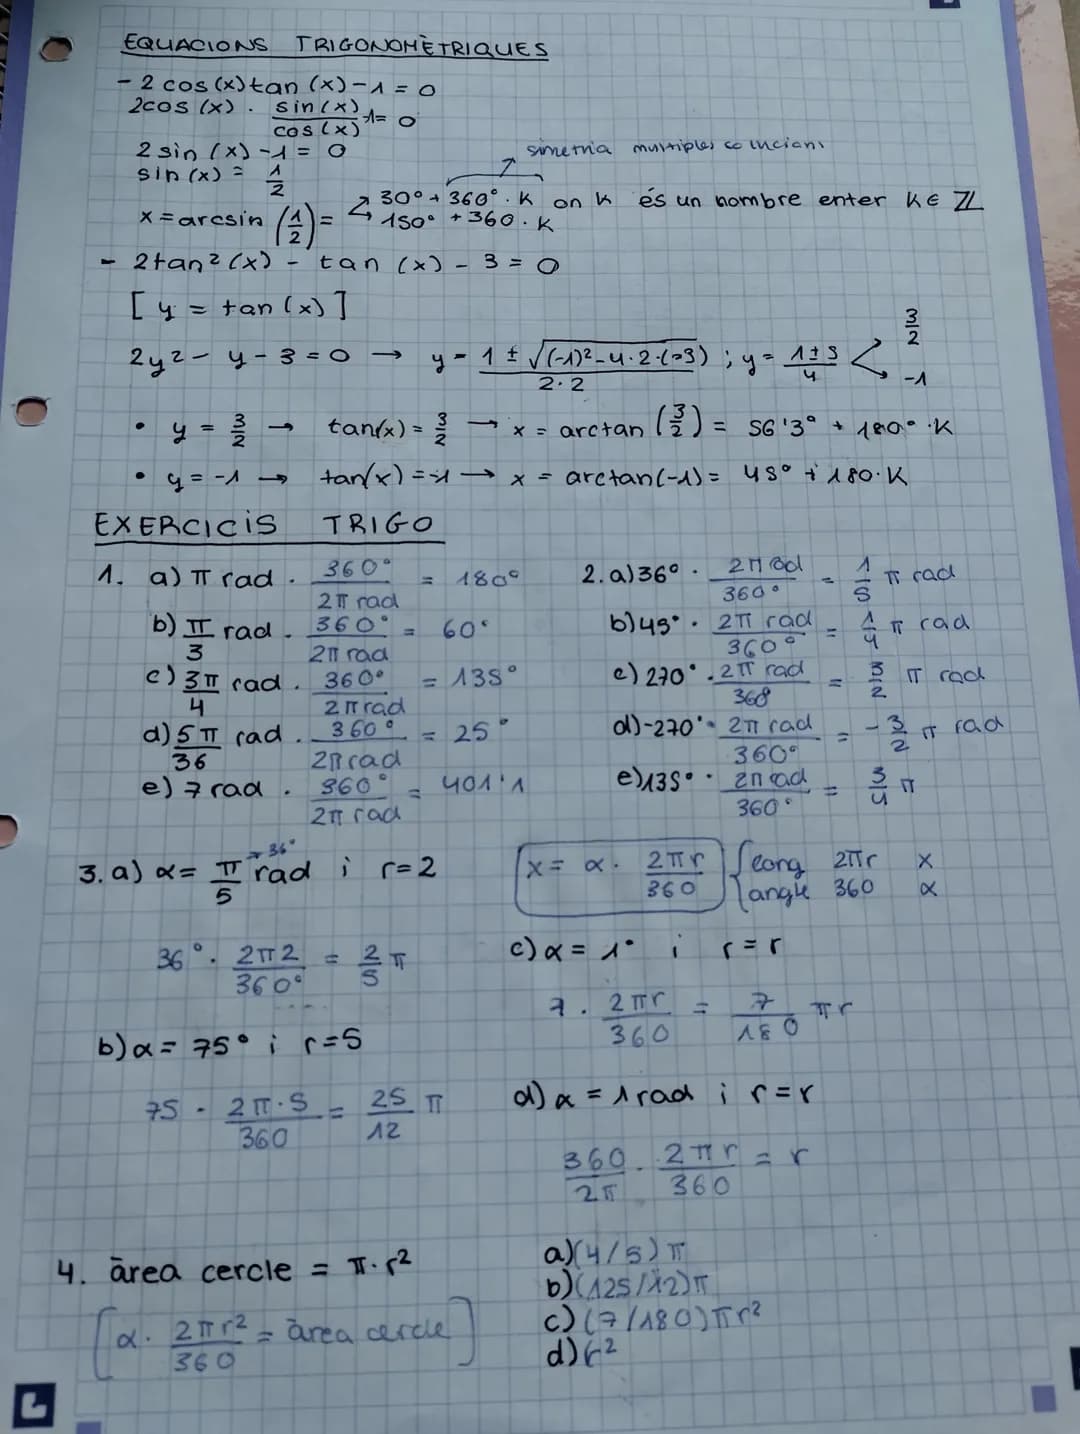 EQUACIONS TRIGONOMÈTRIQUES
- 2 cos(x)tan(x)-1 = 0
2cos(x) · sin(x)/cos(x) -1= 0
2 sin(x) -1 = 0
simetria multiples
sin(x) = 1/2
x = arcsin (1/2) = 30° + 360° · K on K és un nombre enter K ∈ ℤ
150° + 360 · K
- 2tan²(x) - tan(x) - 3 = 0
[y = tan(x)]
2y² - y - 3 = 0 → y = 1 ± √((-1)²-4·2·(-3)) / 2·2 ; y = 1±5/4 < 3/2
-1
• y = 3/2 → tan(x) = 3/2 → x = arctan(3/2) = 56'3° + 180° · K
• y = -1 → tan(x) = -1 → x = arctan(-1) = 45° + 180·K
EXERCICIS TRIGO
1. a) π rad · 360°/2π rad = 180°
b) π/3 rad · 360°/2π rad = 60°
c) 3π/4 rad · 360°/2π rad = 135°
d) 5π/36 rad · 360°/2π rad = 25°
e) 7 rad · 360°/2π rad = 401'1
2. a) 36° · 2π rad/360° = 1/5 π rad
b) 45° · 2π rad/360° = 1/4 π rad
c) 270° · 2π rad/360 = 3/2 π rad
d) -270° · 2π rad/360° = -3/2 π rad
e) 135° · 2π rad/360° = 3/4 π
3. a) α = π/5 rad → 36° i r=2
36° · 2π2/360° = 2/5 π
b) α = 75° i r=5
75 · 2π·5/360 = 25/12 π
x = α · 2πr/360
long 2πr x
angle 360 α
c) α = 1° i r=r
7 · 2πr/360 = 7/180 πr
d) α = 1 rad i r=r
360/2π · 2πr/360 = r
4. àrea cercle = π·r²
[α · 2πr²/360 = àrea cercle]
a) (4/5)π
b) (125/12)π
c) (7/180)πr²
d) r²